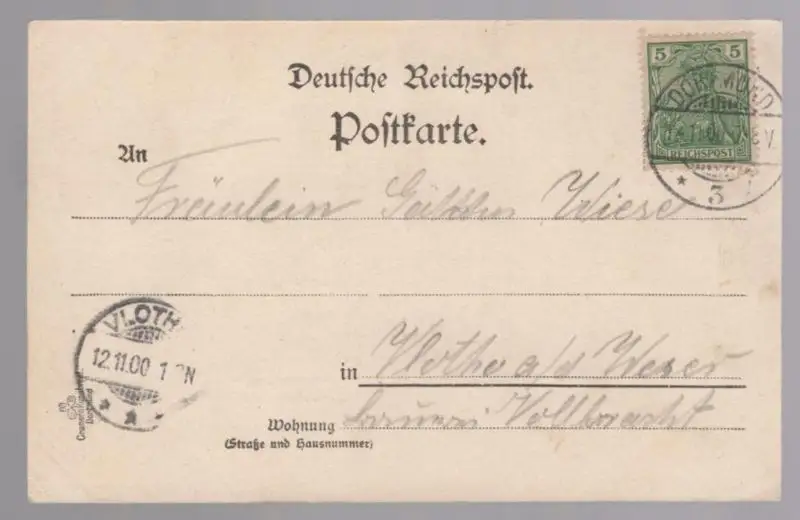 Deutsche Reichspost.
Postkarte.
5 5
REICHSPOST
DORTMUND
3
An
Fräulein Wiese
VLOTHO
12.11.00 1 N
in Vlotho a/d Weser
Wohnung Vollbracht
(Straße und Hausnummer)
Dortmund